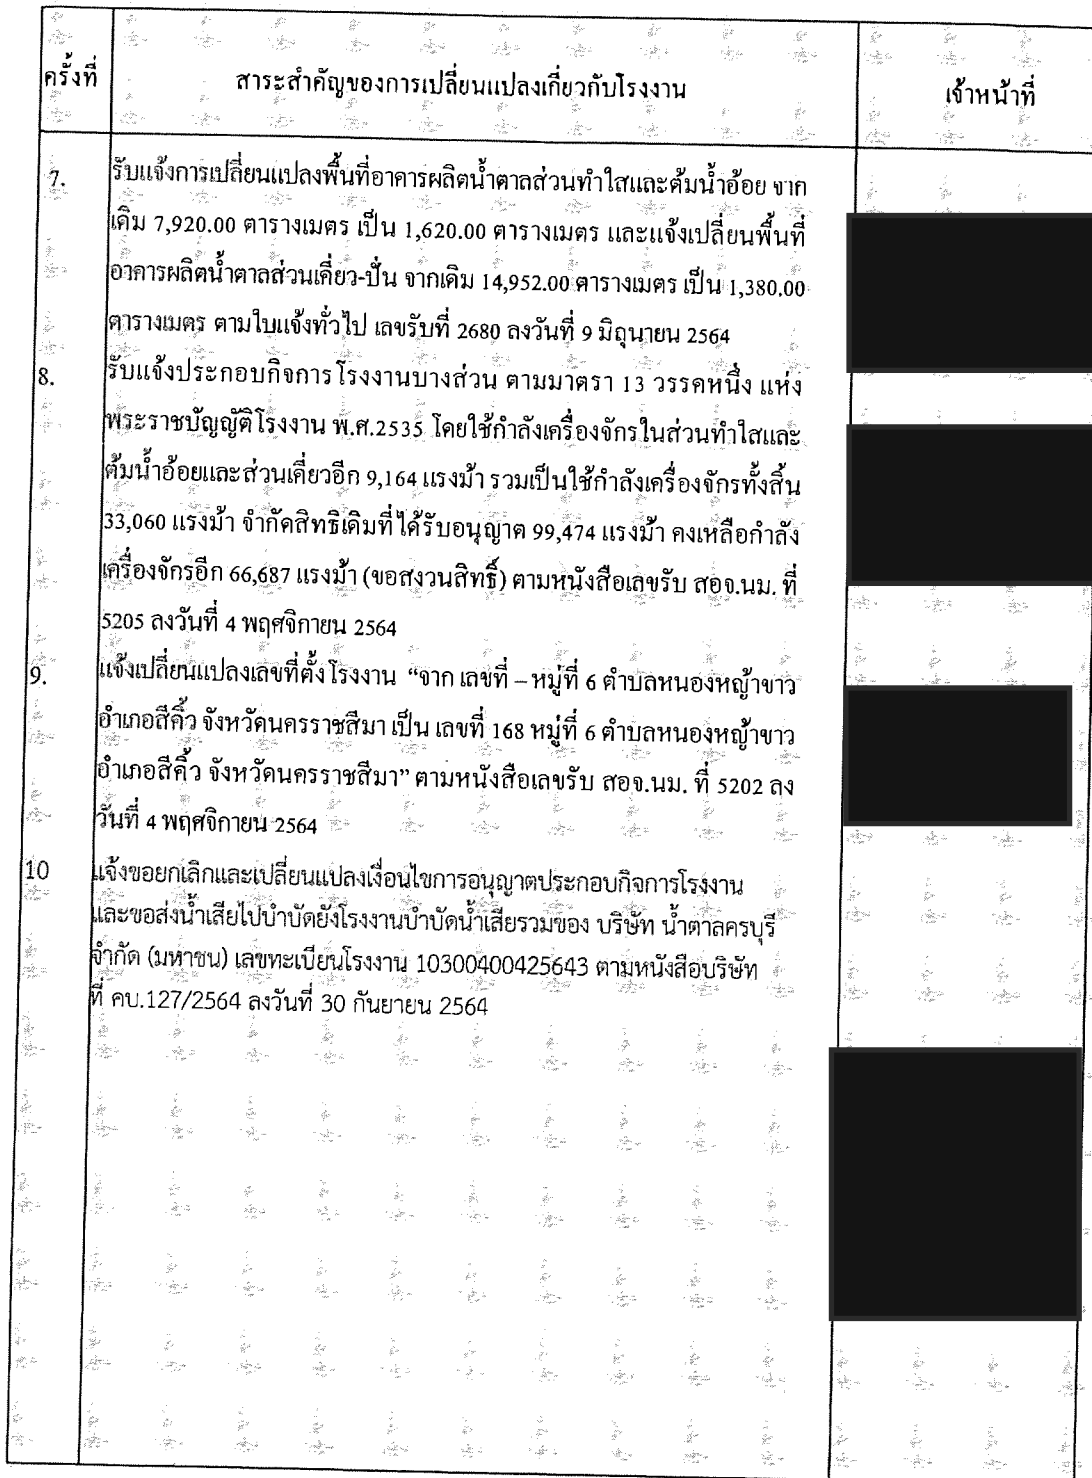 ครั้งที่ สาระสำคัญของการเปลี่ยนแปลงเกี่ยวกับโรงงาน เจ้าหน้าที่
7. รับแจ้งการเปลี่ยนแปลงพื้นที่อาคารผลิตน้ำตาลส่วนทำใสและต้มน้ำอ้อย จาก
เดิม 7,920.00 ตารางเมตร เป็น 1,620.00 ตารางเมตร และแจ้งเปลี่ยนพื้นที่
อาคารผลิตน้ำตาลส่วนเคี่ยว-ปั่น จากเดิม 14,952.00 ตารางเมตร เป็น 1,380.00
ตารางเมตร ตามใบแจ้งทั่วไป เลขรับที่ 2680 ลงวันที่ 9 มิถุนายน 2564
8. รับแจ้งประกอบกิจการโรงงานบางส่วน ตามมาตรา 13 วรรคหนึ่ง แห่ง
พระราชบัญญัติโรงงาน พ.ศ.2535 โดยใช้กำลังเครื่องจักรในส่วนทำใสและ
ต้มน้ำอ้อยและส่วนเคี่ยวอีก 9,164 แรงม้า รวมเป็นใช้กำลังเครื่องจักรทั้งสิ้น
33,060 แรงม้า จำกัดสิทธิเดิมที่ได้รับอนุญาต 99,474 แรงม้า คงเหลือกำลัง
เครื่องจักรอีก 66,687 แรงม้า (ขอสงวนสิทธิ์) ตามหนังสือเลขรับ สอจ.นม. ที่
5205 ลงวันที่ 4 พฤศจิกายน 2564
9. แจ้งเปลี่ยนแปลงเลขที่ตั้งโรงงาน “จาก เลขที่ – หมู่ที่ 6 ตำบลหนองหญ้าขาว
อำเภอสีคิ้ว จังหวัดนครราชสีมา เป็น เลขที่ 168 หมู่ที่ 6 ตำบลหนองหญ้าขาว
อำเภอสีคิ้ว จังหวัดนครราชสีมา” ตามหนังสือเลขรับ สอจ.นม. ที่ 5202 ลง
วันที่ 4 พฤศจิกายน 2564
10 แจ้งขอยกเลิกและเปลี่ยนแปลงเงื่อนไขการอนุญาตประกอบกิจการโรงงาน
และขอส่งน้ำเสียไปบำบัดยังโรงงานบำบัดน้ำเสียรวมของ บริษัท น้ำตาลครบุรี
จำกัด (มหาชน) เลขทะเบียนโรงงาน 10300400425643 ตามหนังสือบริษัท
ที่ คบ.127/2564 ลงวันที่ 30 กันยายน 2564